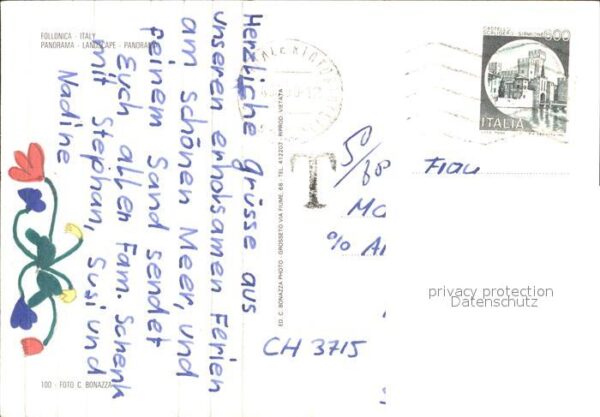 FOLLONICA - ITALY
PANORAMA - LANDSCAPE - PANORAMA
Herzliche grüsse aus
unseren erholsamen Ferien
am schönen Meer, und
feinem Sand sendet
Euch allen Fam. Schenk
mit Stephan, Susi und
Nadine
100 - FOTO C. BONAZZA
ED. C. BONAZZA PHOTO - GROSSETO VIA FIUME, 68 - TEL. 412207 - RIPROD. VIETATA
CASTELLO
SCALIGERO SIRMIONE
600
ITALIA
T
50/
Frau
% A
CH 3715
privacy protection
Datenschutz